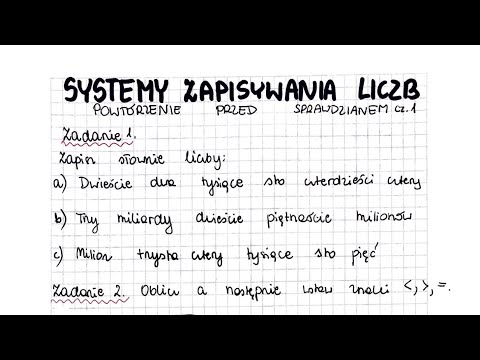 SYSTEMY ZAPISYWANIA LICZB
POWTÓRZENIE PRZED SPRAWDZIANEM cz.1
Zadanie 1.
Zapisz słownie liczby:
a) Dwieście dwa tysiące sto czterdzieści cztery
b) Trzy miliardy dwieście piętnaście milionów
c) Milion trzysta cztery tysiące sto pięć
Zadanie 2. Oblicz a następnie wstaw znaki <, >, =.